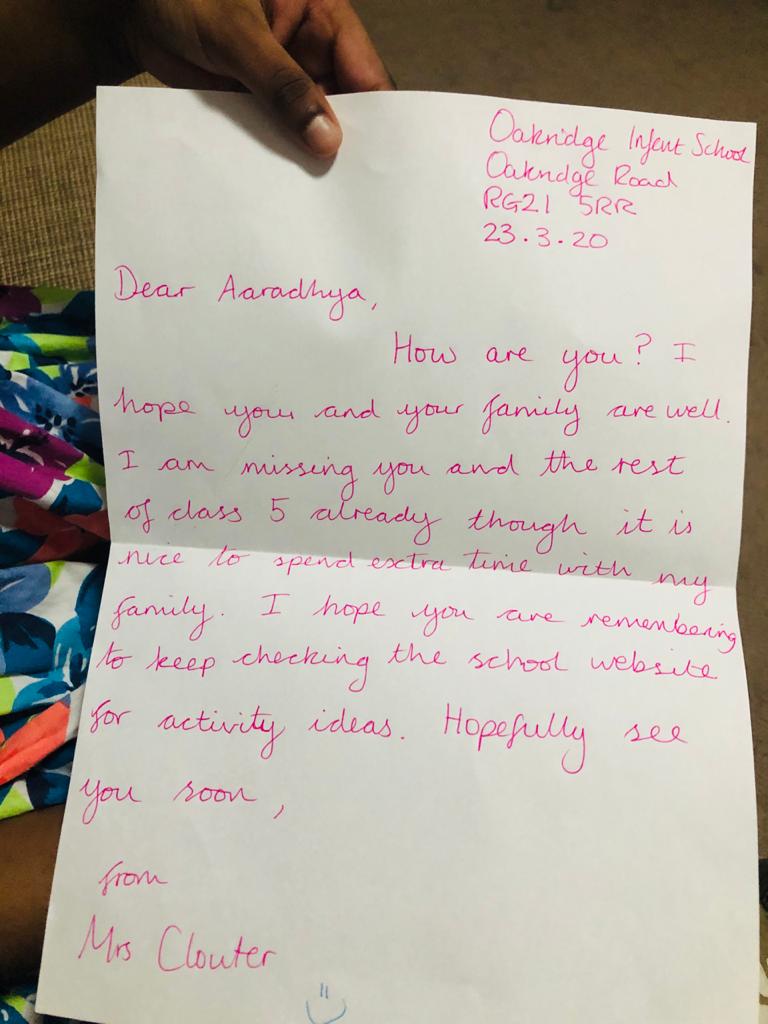 Oakridge Infant School
Oakridge Road
RG21 5RR
23.3.20
Dear Aaradhya,
How are you? I
hope you and your family are well.
I am missing you and the rest
of class 5 already though it is
nice to spend extra time with my
family. I hope you are remembering
to keep checking the school website
for activity ideas. Hopefully see
you soon,
from
Mrs Clouter